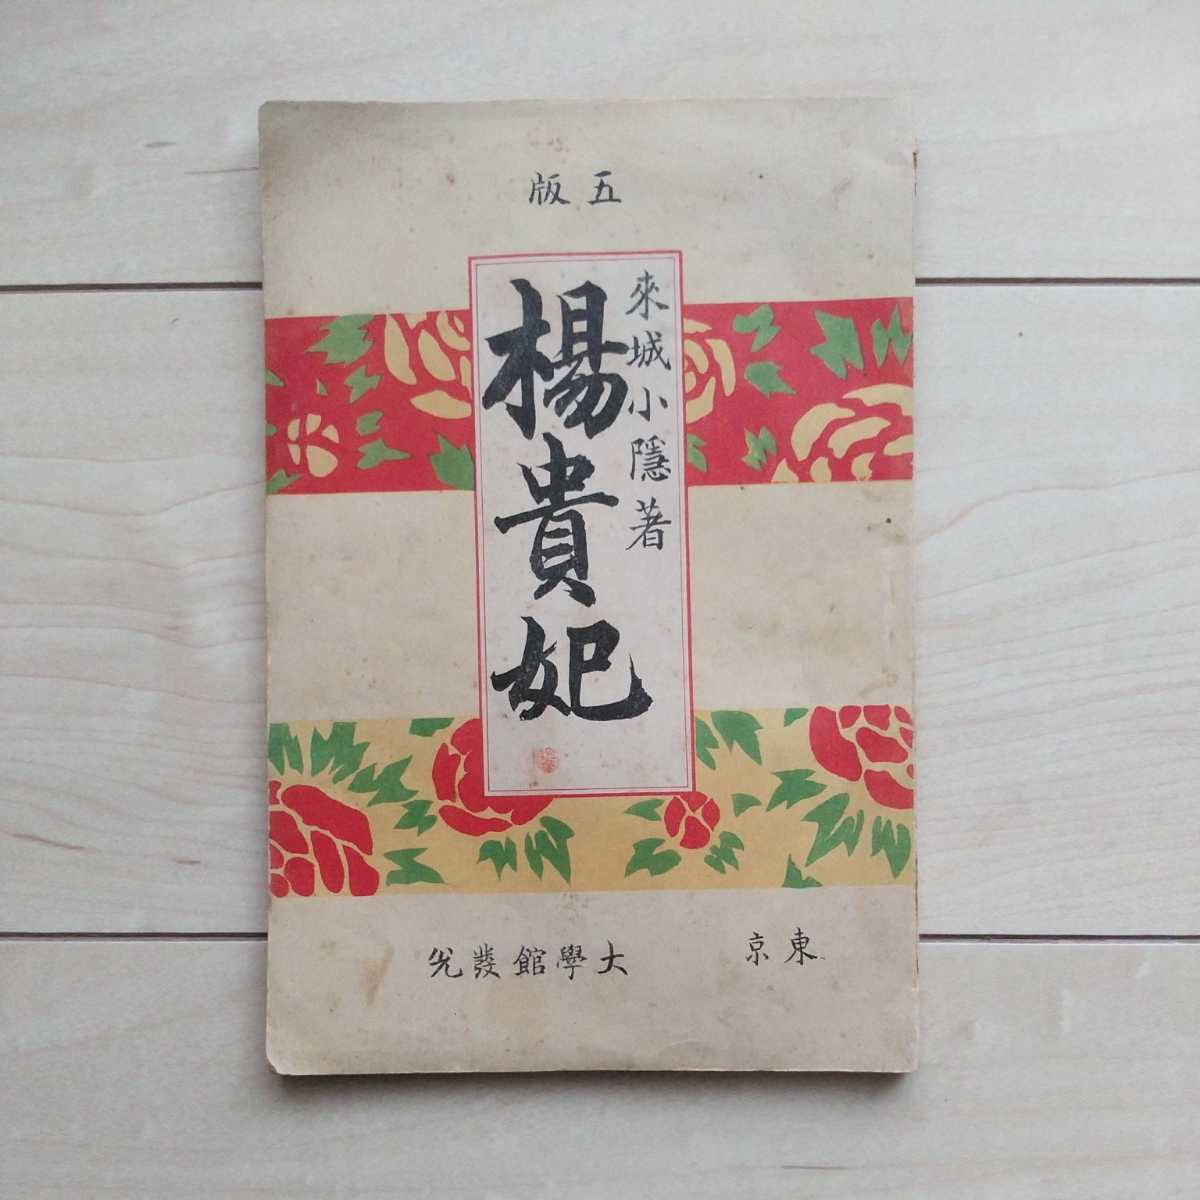 五版
來城小隱著
楊貴妃
東京
大學館發兌